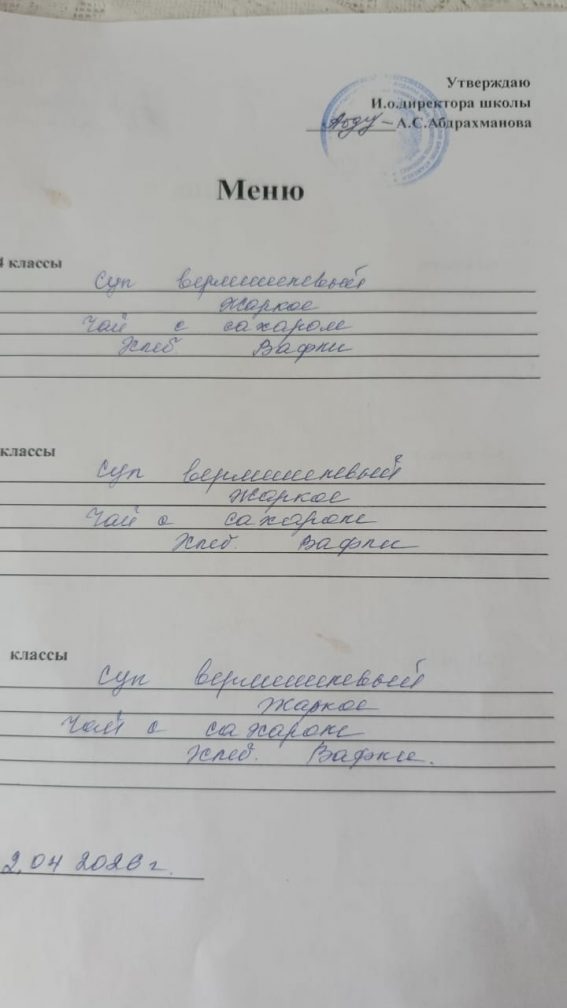 Утверждаю
И.о.директора школы
А.С.Абдрахманова
Меню
4 классы
Суп вермишелевый
Жаркое
Чай с сахаром
Хлеб Вафли
классы
Суп вермишелевый
Жаркое
Чай с сахаром
Хлеб. Вафли
классы
Суп вермишелевый
Жаркое
Чай с сахаром
Хлеб. Вафли.
2.04 2026 г.